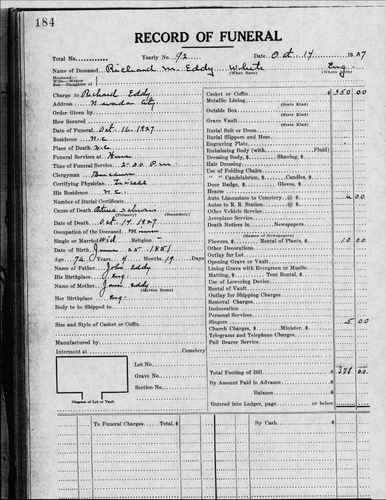 184
RECORD OF FUNERAL
Total No. Yearly No. 92 Date Oct. 14 1927
Name of Deceased Richard M. Eddy White Eng.
(What Race) (Where Born)
Husband—
Wife—Widow
Son—Daughter of
Charge to Richard Eddy
Address Nevada City.
Order Given by
How Secured
Date of Funeral Oct. 16. 1927
Residence N.C.
Place of Death N.C.
Funeral Services at
Time of Funeral Service 2:30 P.m.
Clergyman
Certifying Physician
His Residence N.C.
Number of Burial Certificate
Cause of Death
(Primary) (Secondary)
Date of Death Oct 14 1927
Occupation of the Deceased Miner
Single or Married Wid. Religion
Date of Birth
Age, 74 Years, 4 Months, 19 Days
Name of Father John Eddy
His Birthplace Eng.
Name of Mother Jane Eddy
(Maiden Name)
Her Birthplace Eng.
Body to be Shipped to
Size and Style of Casket or Coffin
Manufactured by
Interment at Cemetery
Lot No.
Grave No.
Section No.
Diagram of Lot or Vault
Casket or Coffin $350.00
Metallic Lining
(State Kind)
Outside Box
(State Kind)
Grave Vault
(State Kind)
Burial Suit or Dress
Burial Slippers and Hose
Engraving Plate
Embalming Body (with Fluid)
Dressing Body, $ Shaving, $
Hair Dressing
Use of Folding Chairs
" " Candelabrum, $ Candles, $
Door Badge, $ Gloves, $
Hearse
Auto Limousines to Cemetery @ $
Autos to R. R. Station @ $
Other Vehicle Service
Aeroplane Service
Death Notices in Newspapers
(Names of Newspapers)
Flowers, $ Rental of Plants, $ 10 00
Other Decorations
Outlay for Lot
Opening Grave or Vault
Lining Grave with Evergreen or Muslin
Matting, $ Tent Rental, $
Use of Lowering Device
Rental of Vault
Outlay for Shipping Charges
Removal Charges
Incineration
Personal Services
Singers 5 00
Church Charges, $ Minister, $
Telegrams and Telephone Charges
Pall Bearer Service
Total Footing of Bill
By Amount Paid in Advance
Balance
Entered into Ledger, page or below
To Funeral Charges. Total $ By Cash. $